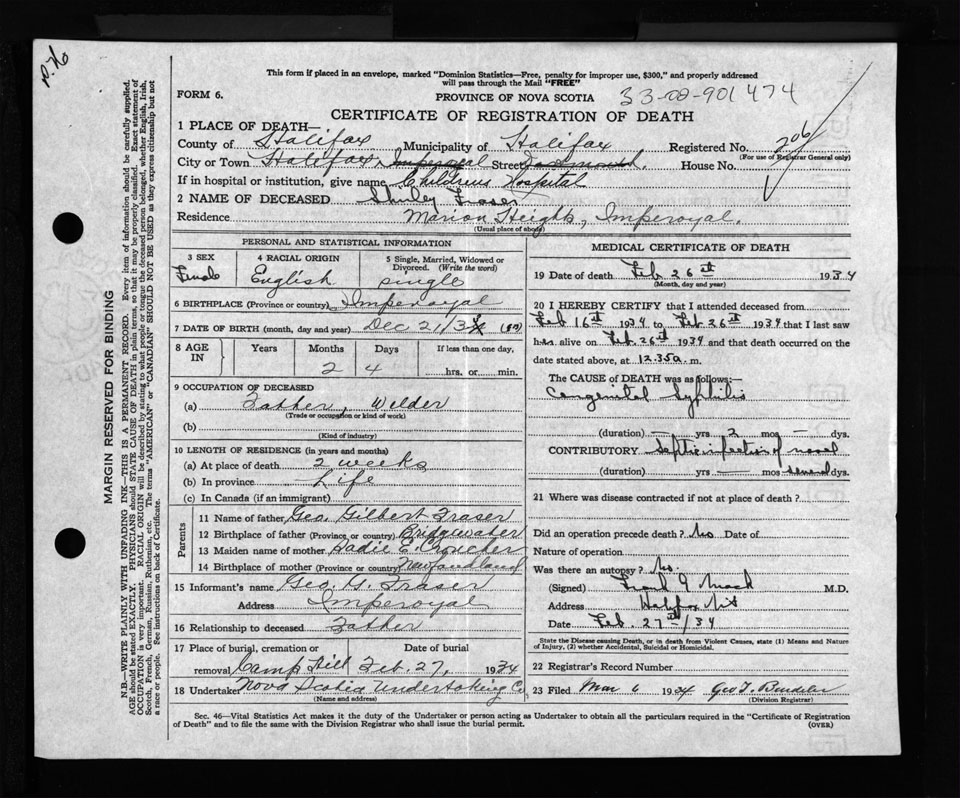 This form if placed in an envelope, marked "Dominion Statistics—Free, penalty for improper use, $300," and properly addressed
will pass through the Mail "FREE"
FORM 6.
PROVINCE OF NOVA SCOTIA
33-02-901474
CERTIFICATE OF REGISTRATION OF DEATH
1 PLACE OF DEATH—
County of Halifax Municipality of Halifax Registered No. 206
(For use of Registrar General only)
City or Town Halifax, Imperoyal Street Dartmouth. House No.
If in hospital or institution, give name Childrens Hospital
2 NAME OF DECEASED Shirley Fraser
Residence Marion Heights, Imperoyal.
(Usual place of abode)
PERSONAL AND STATISTICAL INFORMATION
3 SEX 4 RACIAL ORIGIN 5 Single, Married, Widowed or Divorced. (Write the word)
Female English single
6 BIRTHPLACE (Province or country) Imperoyal
7 DATE OF BIRTH (month, day and year) Dec 21/33
8 AGE IN Years Months Days If less than one day,
2 4 hrs. or min.
9 OCCUPATION OF DECEASED
(a) Father, Welder
(Trade or occupation or kind of work)
(b)
(Kind of industry)
10 LENGTH OF RESIDENCE (in years and months)
(a) At place of death 2 weeks
(b) In province Life
(c) In Canada (if an immigrant)
Parents
11 Name of father Geo. Gilbert Fraser
12 Birthplace of father (Province or country) Bridgewater
13 Maiden name of mother Sadie E.
14 Birthplace of mother (Province or country) Newfoundland
15 Informant's name Geo. G. Fraser
Address Imperoyal
16 Relationship to deceased Father
17 Place of burial, cremation or Date of burial
removal Camp Hill Feb. 27, 1934
18 Undertaker Nova Scotia Undertaking Co.
(Name and address)
MEDICAL CERTIFICATE OF DEATH
19 Date of death Feb 26th 1934
(Month, day and year)
20 I HEREBY CERTIFY that I attended deceased from
Feb 16th 1934 to Feb. 26th 1934 that I last saw
her alive on Feb. 26th 1934 and that death occurred on the
date stated above, at 12.35a. m.
The CAUSE of DEATH was as follows:—
Congenital Syphilis
(duration) — yrs 2 mos — dys.
CONTRIBUTORY Septic infection of navel
(duration) yrs — mos several dys.
21 Where was disease contracted if not at place of death?
Did an operation precede death? No Date of
Nature of operation
Was there an autopsy? No.
(Signed) Mack M.D.
Address Halifax
Date Feb. 27th/34
State the Disease causing Death, or in death from Violent Causes, state (1) Means and Nature
of Injury, (2) whether Accidental, Suicidal or Homicidal.
22 Registrar's Record Number
23 Filed Mar 6 1934 Geo T.
(Division Registrar)
Sec. 46—Vital Statistics Act makes it the duty of the Undertaker or person acting as Undertaker to obtain all the particulars required in the "Certificate of Registration
of Death" and to file the same with the Division Registrar who shall issue the burial permit.
(OVER)
MARGIN RESERVED FOR BINDING
N.B.—WRITE PLAINLY WITH UNFADING INK—THIS IS A PERMANENT RECORD. Every item of information should be carefully supplied.
AGE should be stated EXACTLY. PHYSICIANS should STATE CAUSE OF DEATH in plain terms, so that it may be properly classified. Exact statement of
OCCUPATION is very important. RACIAL ORIGIN will be described by stating to what people or tongue the deceased person belonged, whether English, Irish,
Scotch, French, German, Russian, Ruthenian, etc. The terms "AMERICAN" or "CANADIAN" SHOULD NOT BE USED as they express citizenship but not
a race or people. See instructions on back of Certificate.